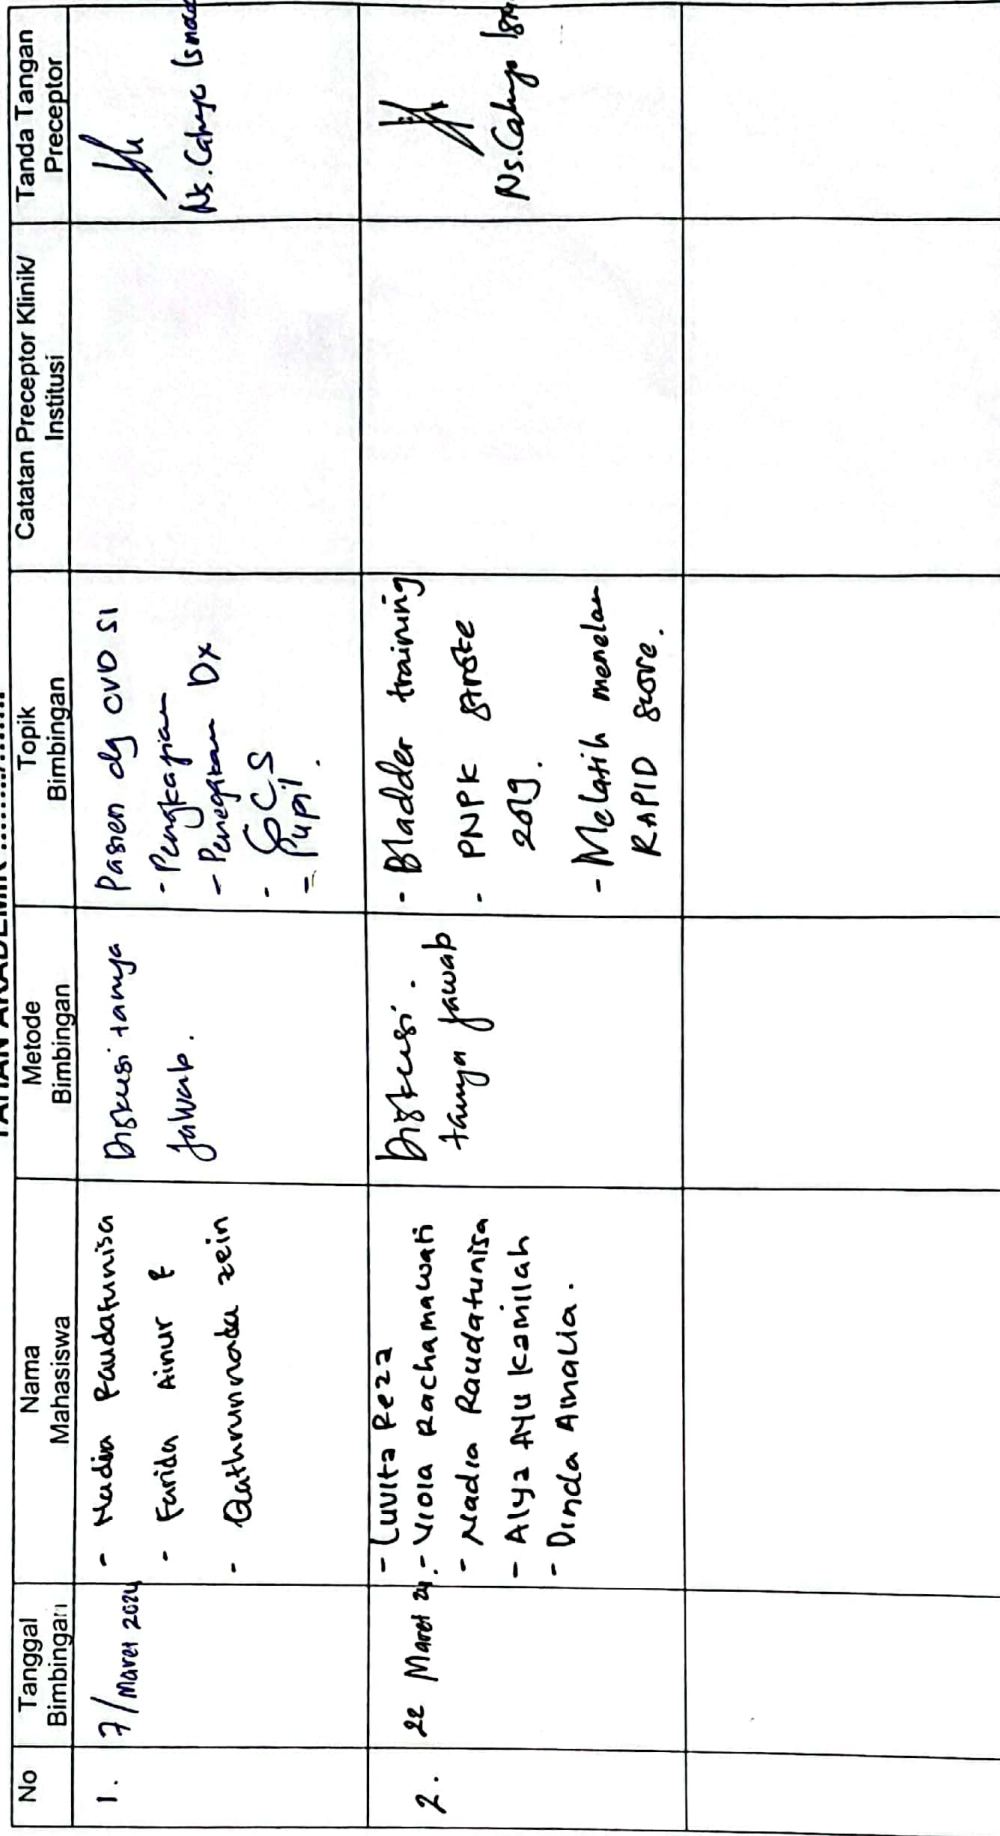 TAHUN AKADEMIK ..................
No
Tanggal
Bimbingan
Nama
Mahasiswa
Metode
Bimbingan
Topik
Bimbingan
Catatan Preceptor Klinik/
Institusi
Tanda Tangan
Preceptor
1.
7/Maret 2024
- Nadia Raudatunisa
- Farida Ainur
- Qathrunnada zein
Diskusi tanya
jawab.
Pasien dg CVD SI
- Pengkajian
- Penegakan Dx
- GCS
- Pupil.
Ns. Cahyo
2.
22 Maret 24.
- Luvita Reza
- Viola Rachamawati
- Nadia Raudatunisa
- Alya Ayu Kamilah
- Dinda Amalia.
Diskusi.
tanya jawab
- Bladder training
- PNPK stroke
2019.
- Melatih menelan
RAPID score.
Ns. Cahyo